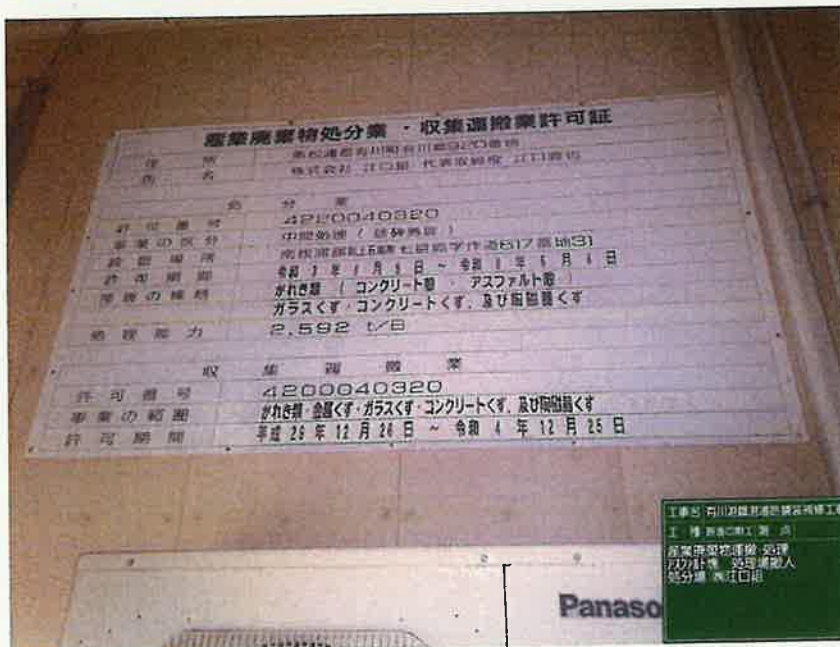 産業廃棄物処分業・収集運搬業許可証
住所 南松浦郡有川町有川郷920番地
氏名 株式会社 江口組 代表取締役 江口
処分業
許可番号 4220040320
事業の区分 中間処理(破砕処理)
設置場所 七目郷字作道617番地31
許可期間 令和 年 6月 日 ~ 令和 年 6月 日
廃棄の種類 がれき類(コンクリート類・アスファルト類)
ガラスくず・コンクリートくず、及び陶磁器くず
処理能力 2,592 t/日
収集運搬業
許可番号 4200040320
事業の範囲 がれき類・金属くず・ガラスくず・コンクリートくず、及び陶磁器くず
許可期間 平成 29年12月26日 ~ 令和 4年12月25日
工事名 有川港臨港道路舗装補修工事
工種 測点
産業廃棄物運搬 処理
アスファルト塊 処理場搬入
処分場 ㈱江口組
Panaso